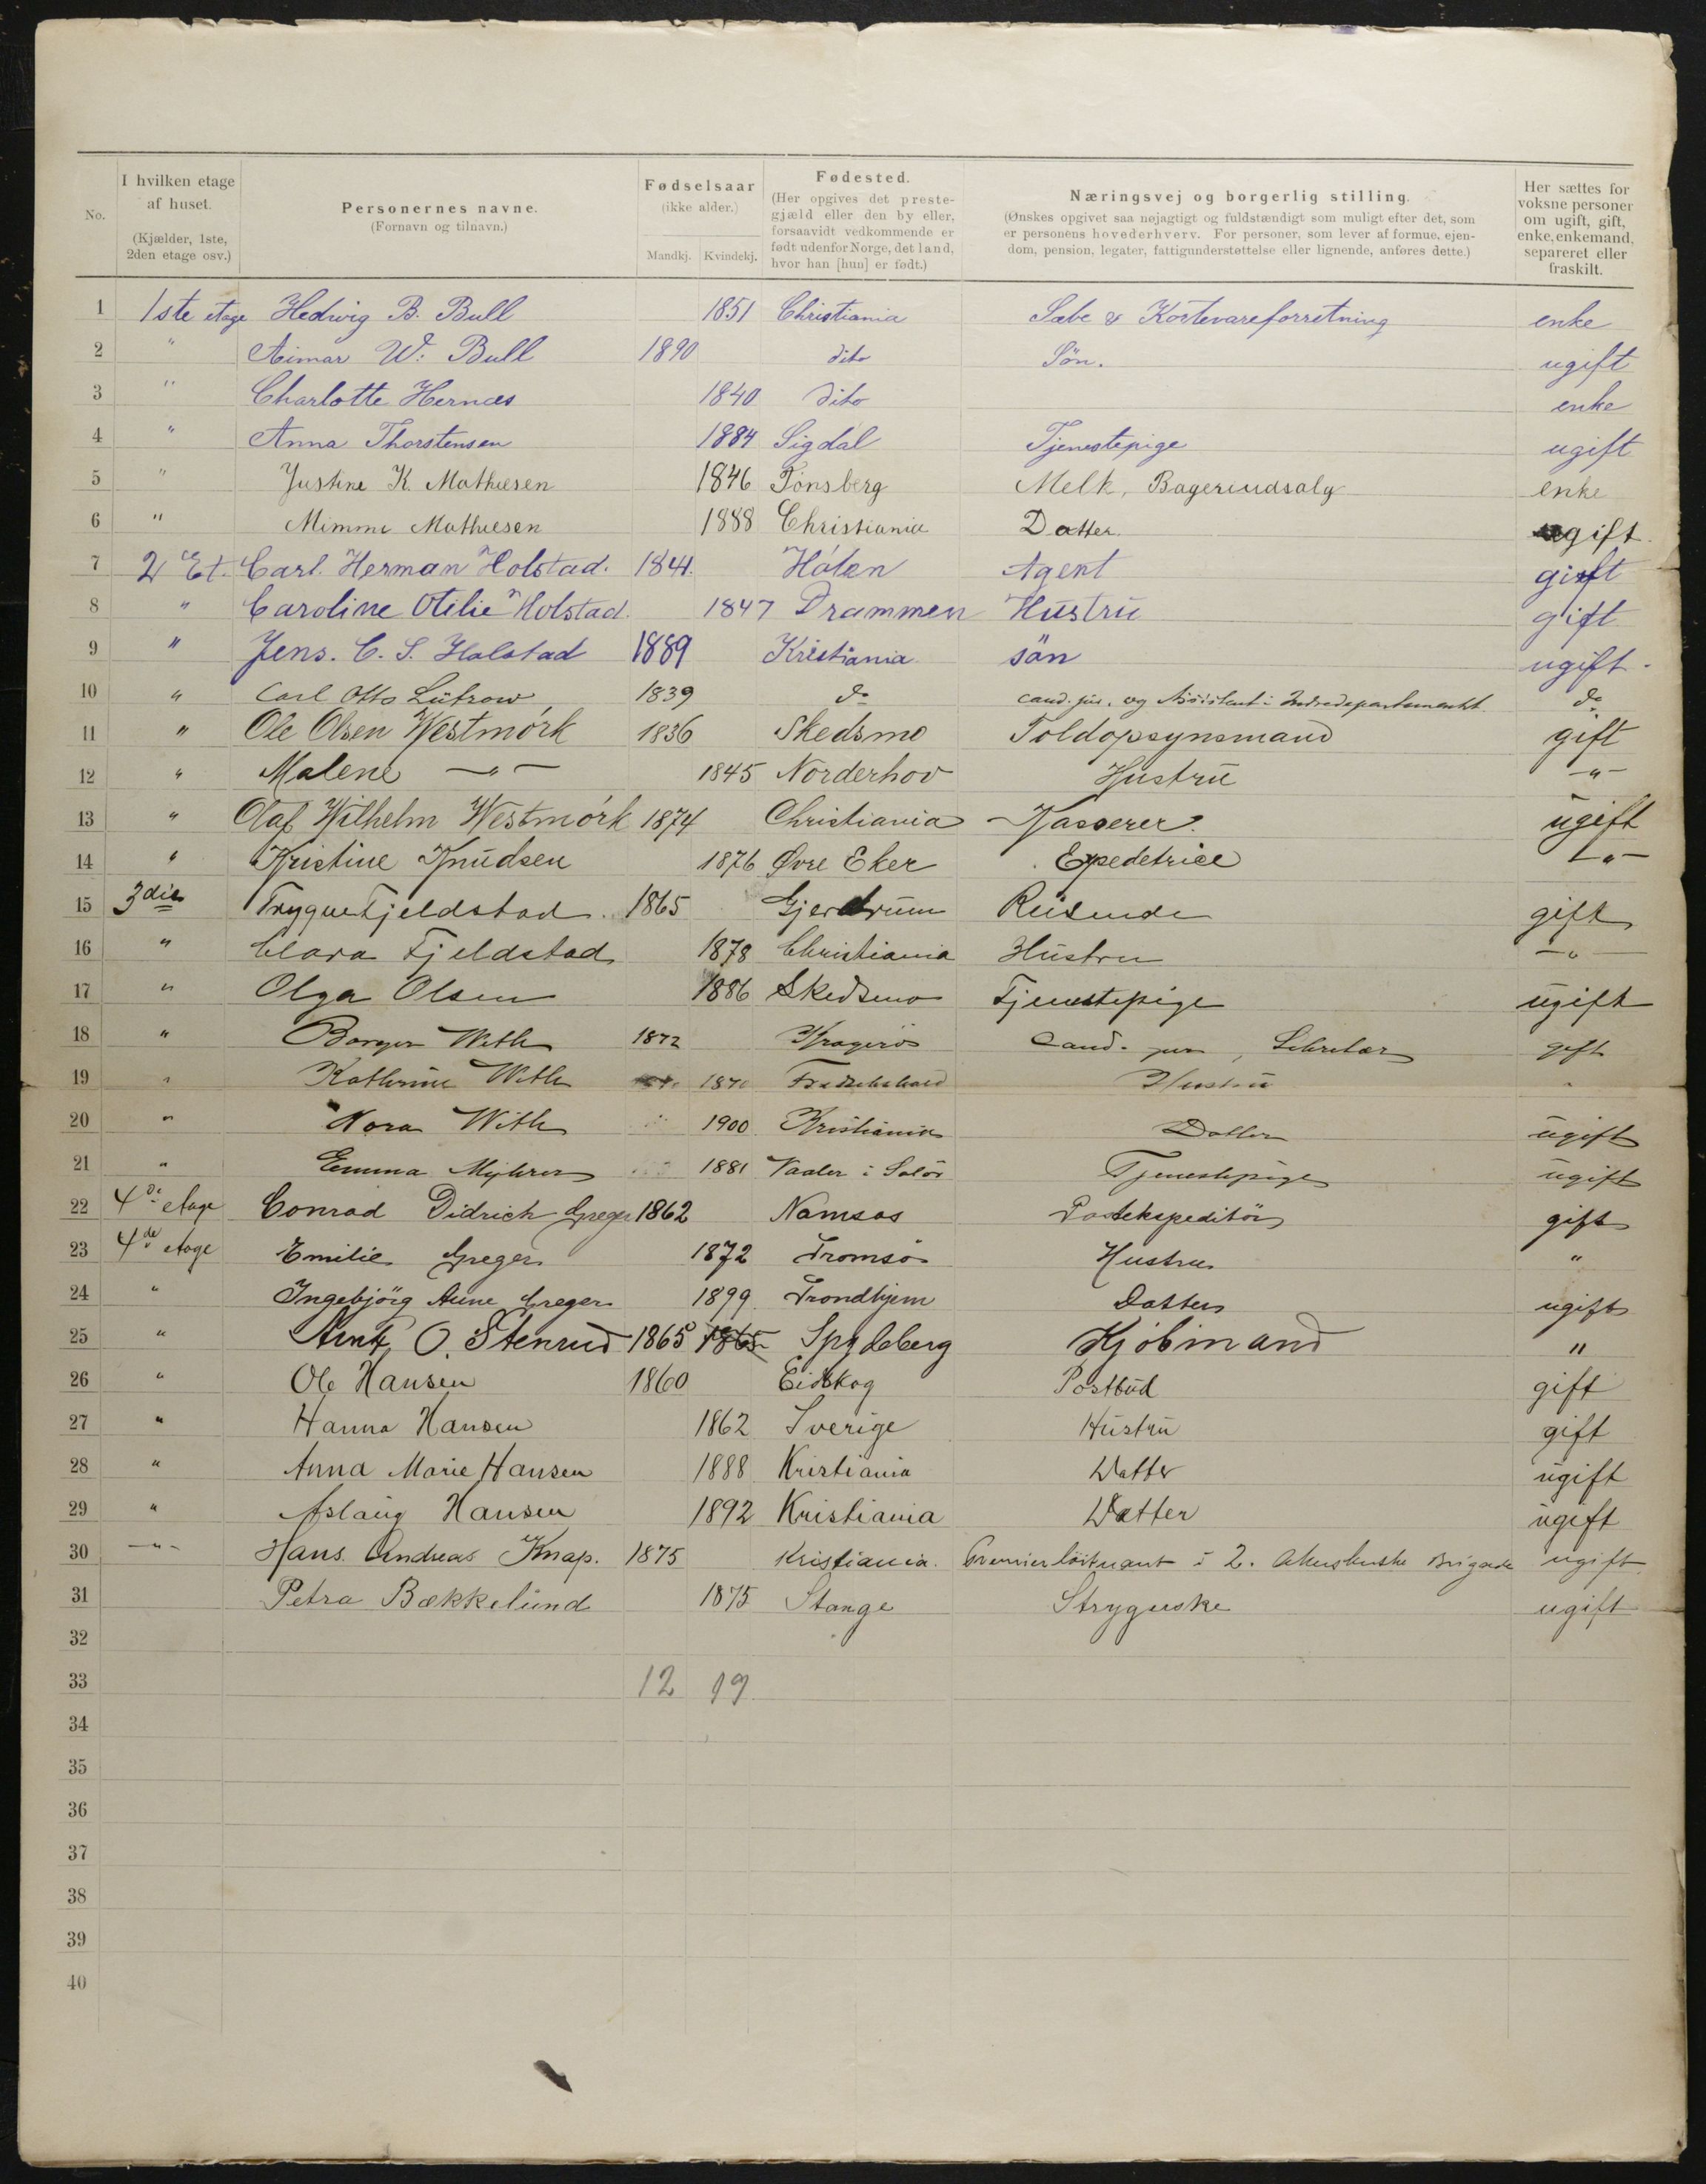 No.
I hvilken etage af huset.
(Kjælder, 1ste, 2den etage osv.)
Personernes navne.
(Fornavn og tilnavn.)
Fødselsaar
(ikke alder.)
Mandkj. Kvindekj.
Fødested.
(Her opgives det prestegjæld eller den by eller, forsaavidt vedkommende er født udenfor Norge, det land, hvor han [hun] er født.)
Næringsvej og borgerlig stilling.
(Ønskes opgivet saa nøjagtigt og fuldstændigt som muligt efter det, som er personens hovederhverv. For personer, som lever af formue, ejendom, pension, legater, fattigunderstøttelse eller lignende, anføres dette.)
Her sættes for voksne personer om ugift, gift, enke, enkemand, separeret eller fraskilt.
1 1ste etage Hedwig B. Bull 1851 Christiania Sæbe & Kortevareforretning enke
2 " Aimar W. Bull 1890 dito Sön. ugift
3 " Charlotte Hernæs 1840 dito enke
4 " Anna Thorstensen 1884 Sigdal Tjenestepige ugift
5 " Justine K. Mathiesen 1846 Tönsberg Melk, Bageriudsalg enke
6 " Mimmi Mathiesen 1888 Christiania Datter. ugift.
7 2 Et. Carl. Herman Holstad. 1841. Hólen Agent gift
8 " Caroline Otilie Holstad. 1847 Drammen Hustru gift
9 " Jens. C. S. Holstad 1889 Kristiania sön ugift.
10 " Carl Otto Lützow 1839 do cand. jur. og Assistent i Indredepartementet do
11 " Ole Olsen Westmórk 1836 Skedsmo Toldopsynsmand gift
12 " Malene — " — 1845 Norderhov Hustru — " —
13 " Olaf Wilhelm Westmórk 1874 Christiania Kasserer. ugift
14 " Kristine Knudsen 1876 Øvre Eker Expedetrice — " —
15 3die Trygve Fjeldstad. 1865 Gjerdrum Reisende gift
16 " Clara Fjeldstad 1878 Christiania Hustru — " —
17 " Olga Olsen 1886 Skedsmo Tjenestepige ugift
18 " Borger With 1872 Kragerö Cand. jur, Sekretær gift
19 " Kathrine With 1870 Fredrikshald Hustru "
20 " Nora With 1900 Kristiania Datter ugift
21 " Emma Myhrer 1881 Vaaler i Solör Tjenestepige ugift
22 4de etage Conrad Didrich Greger 1862 Namsos Postekspeditör gift
23 4de etage Emilie Greger 1872 Tromsö Hustru "
24 " Ingebjörg Aune Greger 1899 Trondhjem Datter ugift
25 " Arnt O. Stenrud 1865 1865 Spydeberg Kjöbmand "
26 " Ole Hansen 1860 Eidskog Postbud gift
27 " Hanna Hansen 1862 Sverige Hustru gift
28 " Anna Marie Hansen 1888 Kristiania Datter ugift
29 " Aslaug Hansen 1892 Kristiania Datter ugift
30 — " — Hans Andreas Knap. 1875 Kristiania. Premierlöitnant i 2. Akershuske Brigade ugift
31 Petra Bækkelund 1875 Stange Stryguske ugift
32
33 12 19
34
35
36
37
38
39
40